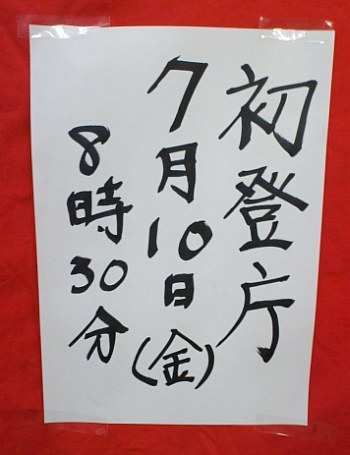 初登庁
7月10日(金)
8時30分